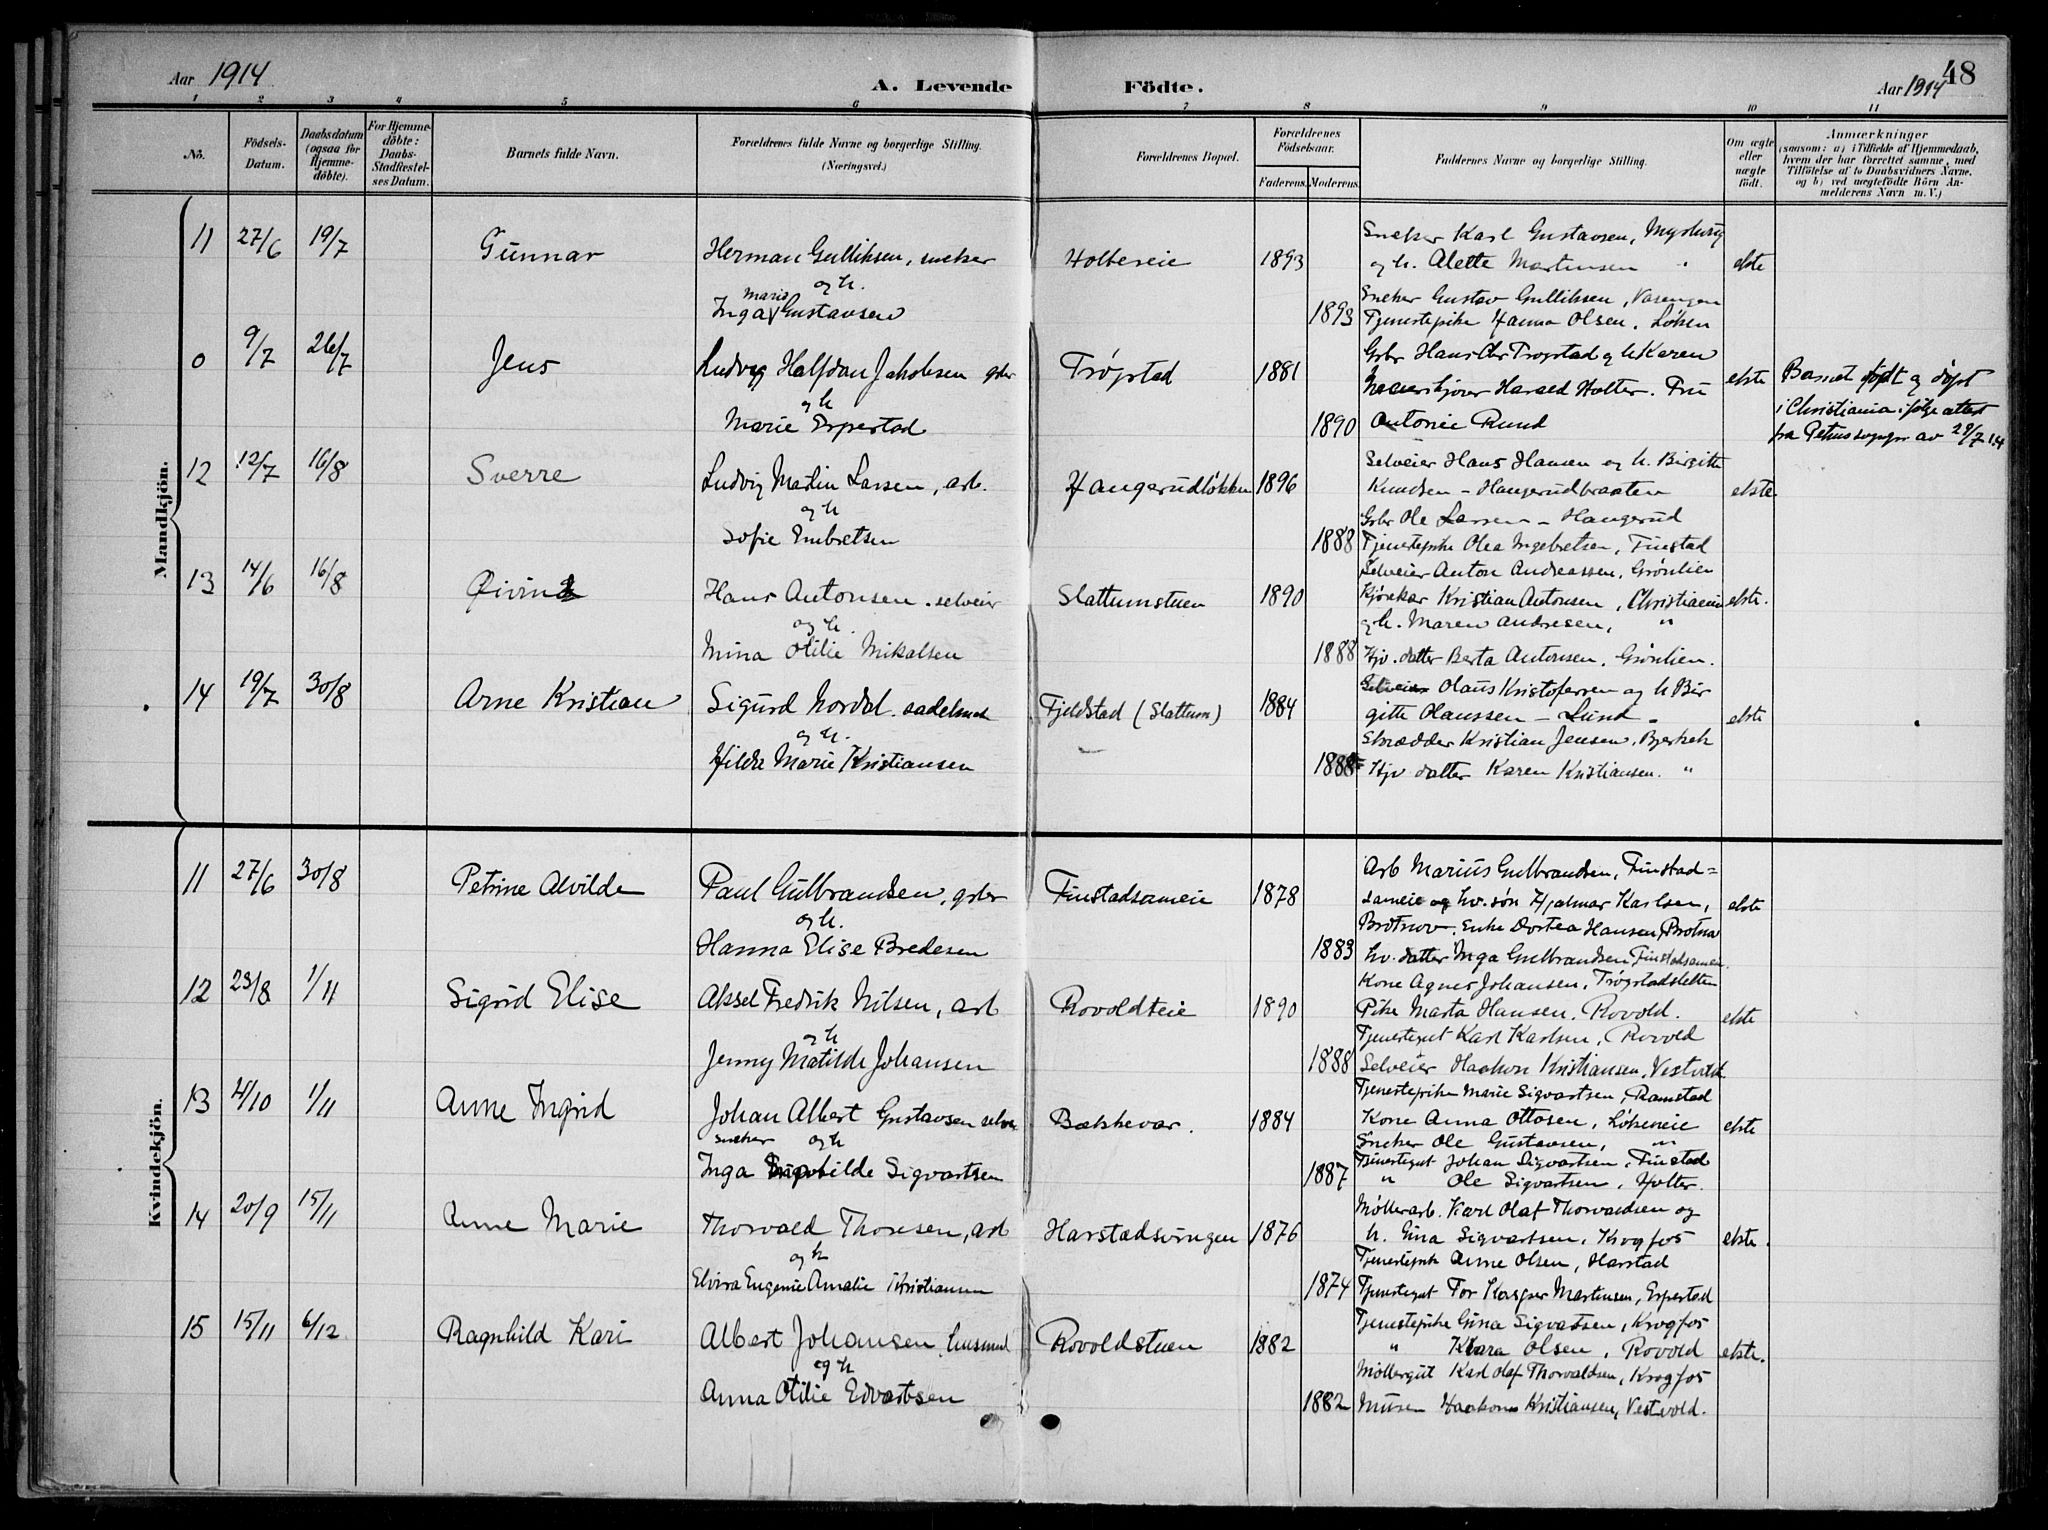 48
Aar 1914
A. Levende
Födte.
Aar 1914
1 2 3 4 5 6 7 8 9 10 11
No.
Födsels-
Datum.
Daabsdatum
(ogsaa for
Hjemme-
döbte).
For Hjemme-
döbte:
Daabs-
Stadfæstel-
ses Datum.
Barnets fulde Navn.
Forældrenes fulde Navne og borgerlige Stilling.
(Næringsvei.)
Forældrenes Bopæl.
Forældrenes
Födselsaar.
Faderens.
Moderens.
Faddernes Navne og borgerlige Stilling.
Om ægte
eller
uægte
födt.
Anmærkninger
(saasom: a) i Tilfælde af Hjemmedaab,
hvem der har forrettet samme, med
Tilföielse af to Daabsvidners Navne,
og b) ved uægtefödte Börn An-
melderens Navn m. V.)
Mandkjön.
11 27/6 19/7 Gunnar Herman Gulliksen, sneker
og h.
Inga Marie Gustavsen
Holtereie 1893 1893
Sneker Karl Gustavsen, Mysburg
og h. Alette Martinsen "
Sneker Gustav Gulliksen, Vasengen
Tjenestepike Hanna Olsen. Løken
ekte
0 9/7 26/7 Jens Ludvig Halfdan Jakobsen gbr
og h
Marie Erpestad
Trøgstad 1881 1890
Gbr Hans Chr Trogstad og h Karen
Harald Holter. Fru
Antonie Rund
ekte
Barnet født og døpt
i Christiania ifølge attest
fra Petrus sogn av 29/7 14
12 12/7 16/8 Sverre Ludvig Martin Larsen, arb.
og h
Sofie Embretsen
Haugerudløkken 1896 1888
Selveier Hans Hansen og h. Birgitte
Knudsen - Haugerudbraaten
Gbr Ole Larsen - Haugerud
Tjenestepike Olea Ingebretsen, Finstad
ekte.
13 14/6 16/8 Øivind Hans Antonsen. selveier
og h.
Mina Otilie Mikalsen
Slattumstuen 1890 1888
Selveier Anton Andreassen, Grønlien
Kjørekar Kristian Antonsen, Christiania
og h. Maren Andresen, "
Hjv. datter Berta Antonsen, Grønlien.
ekte.
14 19/7 30/8 Arne Kristian Sigurd Nordal. sadelmak
og h.
Hilda Marie Kristiansen
Fjeldstad (Slattum) 1884 1888
Selveier Olaus Kristofersen og h Bir
gitte Olaussen - Lund -
Skrædder Kristian Jensen, Bjerkek
Hjv datter Karen Kristiansen. "
ekte
Kvindekjön.
11 27/6 30/8 Petrine Alvilde Paul Gulbrandsen, gbr
og h.
Hanna Elise Bredesen
Finstadsameie 1878 1883
Arb Marius Gulbrandsen, Finstad=
sameie og hv. søn Hjalmar Karlsen,
Brotnov. Enke Dortea Hansen, Brotno
hv. datter Inga Gulbrandsen Finstadsamei.
ekte
12 23/8 1/11 Sigrid Elise Aksel Fredrik Nilsen, arb
og h
Jenny Matilde Johansen
Rovoldseie 1890 1888
Kone Agnes Johansen, Trøgstadsletten
Pike Marta Hansen, Rovold.
Tjenestegut Karl Karlsen, Rovold
Selveier Haakon Kristiansen, Vestvold.
ekte
13 4/10 1/11 Anne Ingrid Johan Albert Gustavsen selv.
sneker og h
Inga Sigvartsen
Bækkevar. 1884 1887
Tjenestepike Marie Sigvartsen, Ramstad
Kone Anna Ottosen, Løkeneie
Sneker Ole Gustavsen, "
Tjenestegut Johan Sigvartsen, Finstad
" Ole Sigvartsen, Holter.
ekte
14 20/9 15/11 Anne Marie Thorvald Thoresen, arb
og h
Elvira Eugenie Amalie Kristiansen
Harstadsvingen 1876 1874
Møllerarb. Karl Olaf Thorvaldsen og
h. Gina Sigvartsen, Krogfos
Tjenestepike Anne Olsen, Harstad
Tjenestegut Tor Kasper Martinsen, Erpestad
ekte.
15 15/11 6/12 Ragnhild Kari Albert Johansen, husmand
og h
Anna Otilie Edvartsen
Rovoldstuen 1882 1882
Tjenestepike Gina Sigvartsen, Krogfos
" Klara Olsen, Rovold
Møllergut Karl Olaf Thorvaldsen, Krogfos
Haakon Kristiansen, Vestvold.
ekte.